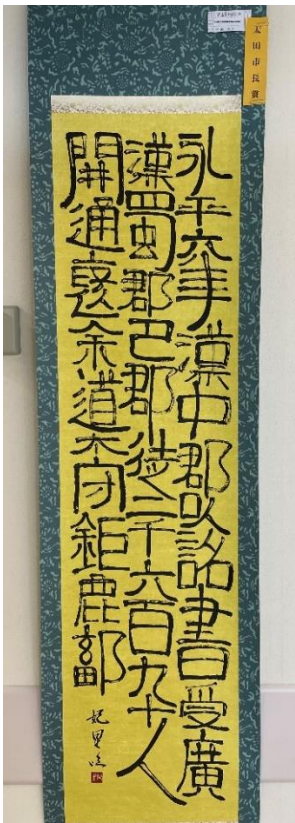 太田市長賞
永平六年漢中郡以詔書受廣
漢蜀郡巴郡徒二千六百九十人
開通褒余道太守鉅鹿鄐